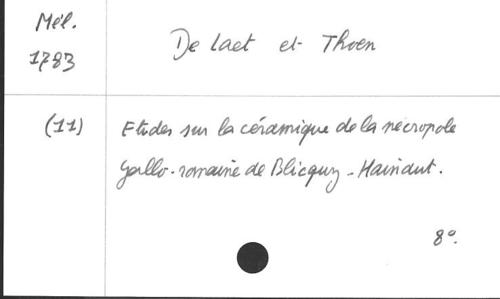 Mél.
1783
De Laet et Thoen
(11)
Etudes sur la céramique de la nécropole
gallo-romaine de Blicquy - Hainaut.
8°.